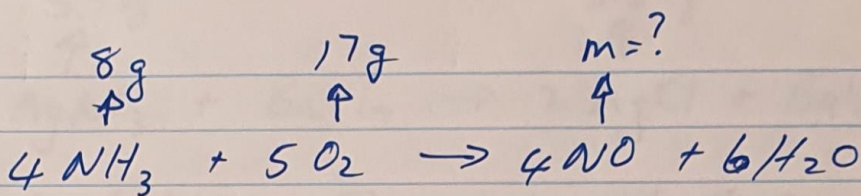 8g 17g m=?
↑ ↑ ↑
4 NH₃ + 5 O₂ → 4 NO + 6 H₂O